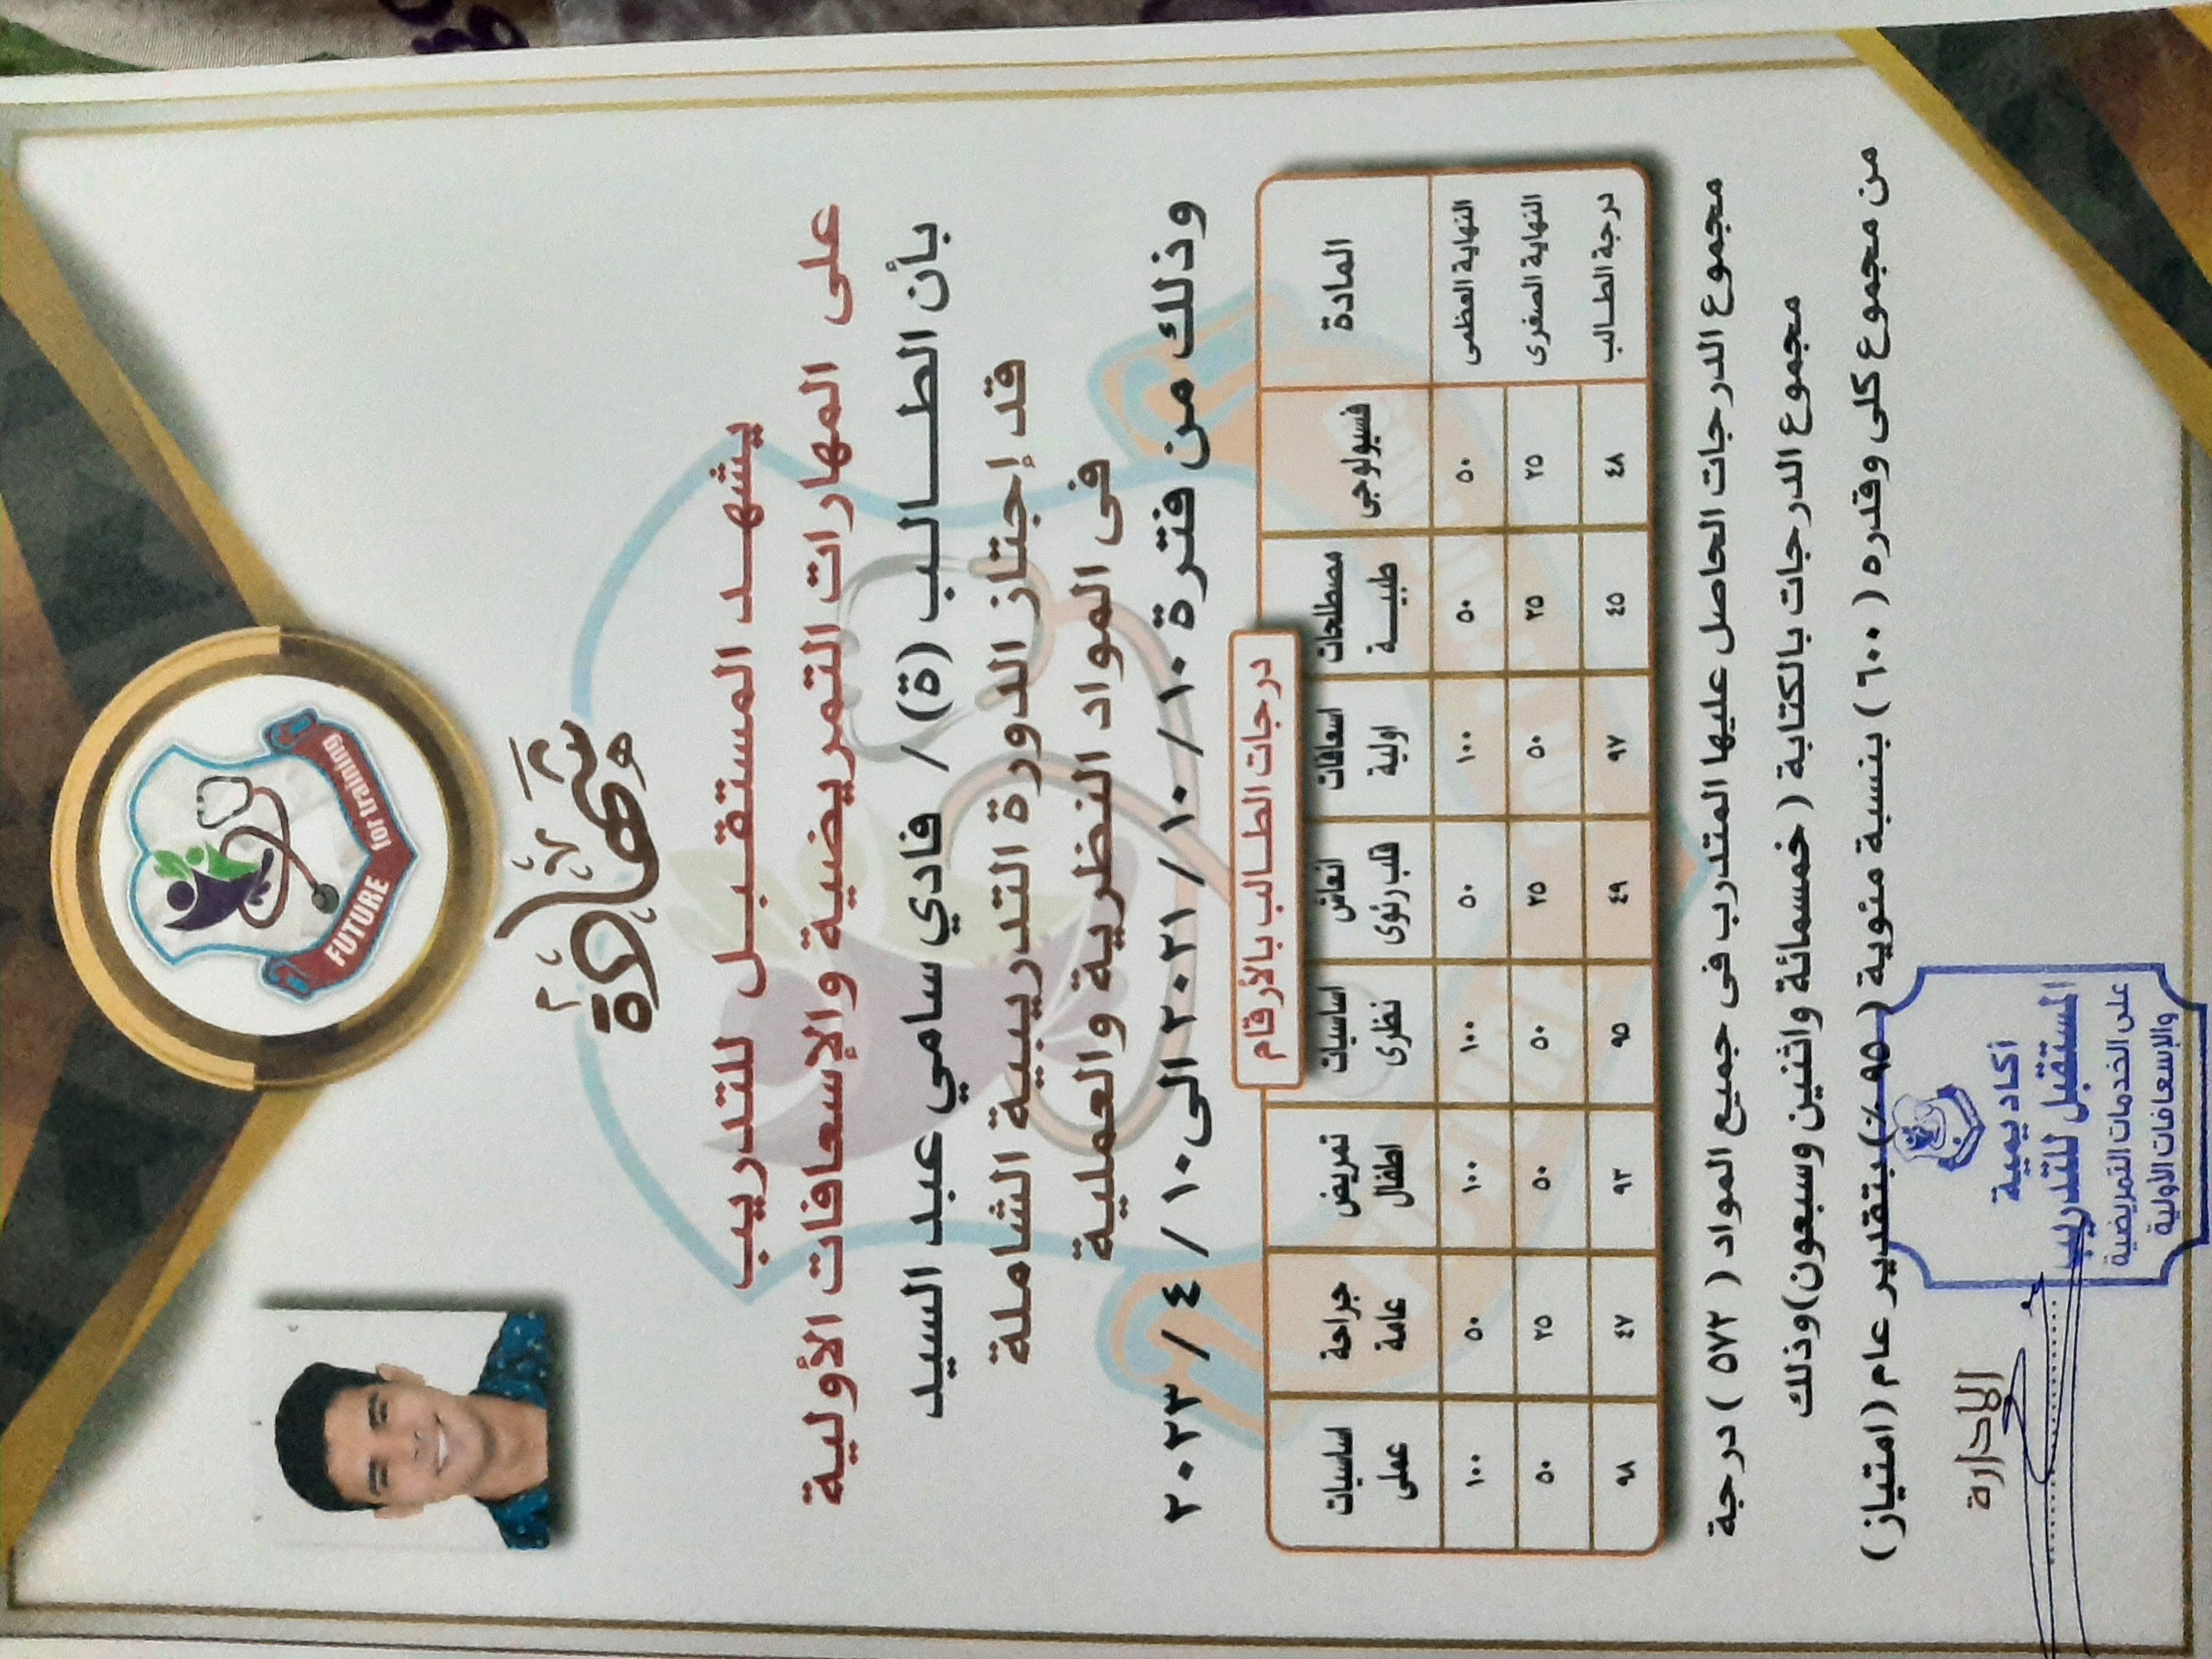 FUTURE for training
شهادة
يشهد المستقبل للتدريب
على المهارات التمريضية والإسعافات الأولية
بأن الطالب (ة) / فادي سامي عبد السيد
قد إجتاز الدورة التدريبية الشاملة
فى المواد النظرية والعملية
وذلك من فترة ١٠ / ١٠ / ٢٠٢١ الى ١٠ / ٤ / ٢٠٢٣
درجات الطالب بالأرقام
المادة فسيولوجى مصطلحات طبية اسعافات اولية انعاش قلب رئوى اساسيات نظرى تمريض اطفال جراحة عامة اساسيات عملى
النهاية العظمى ٥٠ ٥٠ ١٠٠ ٥٠ ١٠٠ ١٠٠ ٥٠ ١٠٠
النهاية الصغرى ٢٥ ٢٥ ٥٠ ٢٥ ٥٠ ٥٠ ٢٥ ٥٠
درجة الطالب ٤٨ ٤٥ ٩٧ ٤٩ ٩٥ ٩٣ ٤٧ ٩٨
مجموع الدرجات الحاصل عليها المتدرب فى جميع المواد ( ٥٧٢ ) درجة
مجموع الدرجات بالكتابة ( خمسمائة واثنين وسبعون) وذلك
من مجموع كلى وقدره ( ٦٠٠ ) بنسبة مئوية ( ٩٥ ٪ ) بتقدير عام ( امتياز )
الإدارة
أكاديمية
المستقبل للتدريب
على الخدمات التمريضية
والإسعافات الأولية